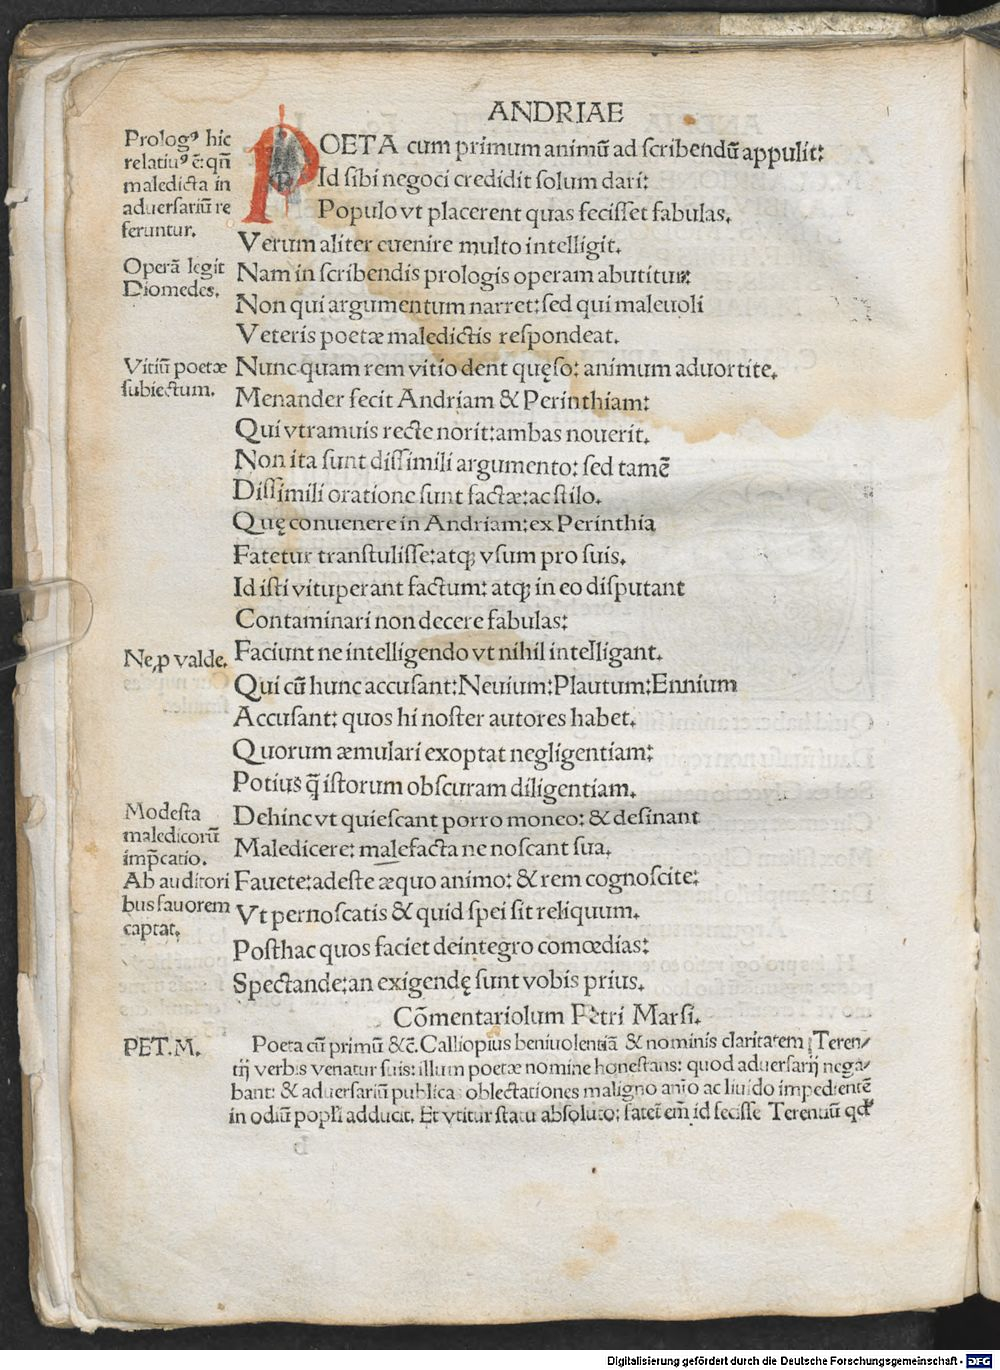 ANDRIAE
Prologꝰ hic
relatiuꝰ ē: qñ
maledicta in
aduersariū re
feruntur.
POETA cum primum animū ad scribendū appulit:
Id sibi negoci credidit solum dari:
Populo vt placerent quas fecisset fabulas.
Verum aliter euenire multo intelligit.
Operā legit
Diomedes.
Nam in scribendis prologis operam abutitur:
Non qui argumentum narret: sed qui maleuoli
Veteris poetæ maledictis respondeat.
Vitiū poetæ
subiectum.
Nunc quam rem vitio dent quęso: animum aduortite.
Menander fecit Andriam & Perinthiam:
Qui vtramuis recte norit: ambas nouerit.
Non ita sunt dissimili argumento: sed tamē
Dissimili oratione sunt factæ: ac stilo.
Quę conuenere in Andriam: ex Perinthia
Fatetur transtulisse: atqꝫ vsum pro suis.
Id isti vituperant factum: atqꝫ in eo disputant
Contaminari non decere fabulas:
Ne, ꝓ valde.
Faciunt ne intelligendo vt nihil intelligant.
Qui cū hunc accusant: Neuium: Plautum: Ennium
Accusant: quos hi noster autores habet.
Quorum æmulari exoptat negligentiam:
Potius q̄ istorum obscuram diligentiam.
Modesta
maledicorū
imp̄catio.
Dehinc vt quiescant porro moneo: & desinant
Maledicere: malefacta ne noscant sua.
Ab auditori
bus fauorem
captat.
Fauete: adeste æquo animo: & rem cognoscite:
Vt pernoscatis & quid spei sit reliquum.
Posthac quos faciet deintegro comœdias:
Spectande: an exigendę sunt vobis prius.
Cōmentariolum Petri Marsi.
PET. M.
Poeta cū primū &c̄. Calliopius beniuolentiā & nominis claritatem Teren/
tij verbis venatur suis: illum poetæ nomine honestans: quod aduersarij nega/
bant: & aduersariū publica oblectationes maligno aīo ac liuido impedientē
in odiū popli adducit. Et vtitur statu absoluto: fateť em̄ id fecisse Terentiū qd